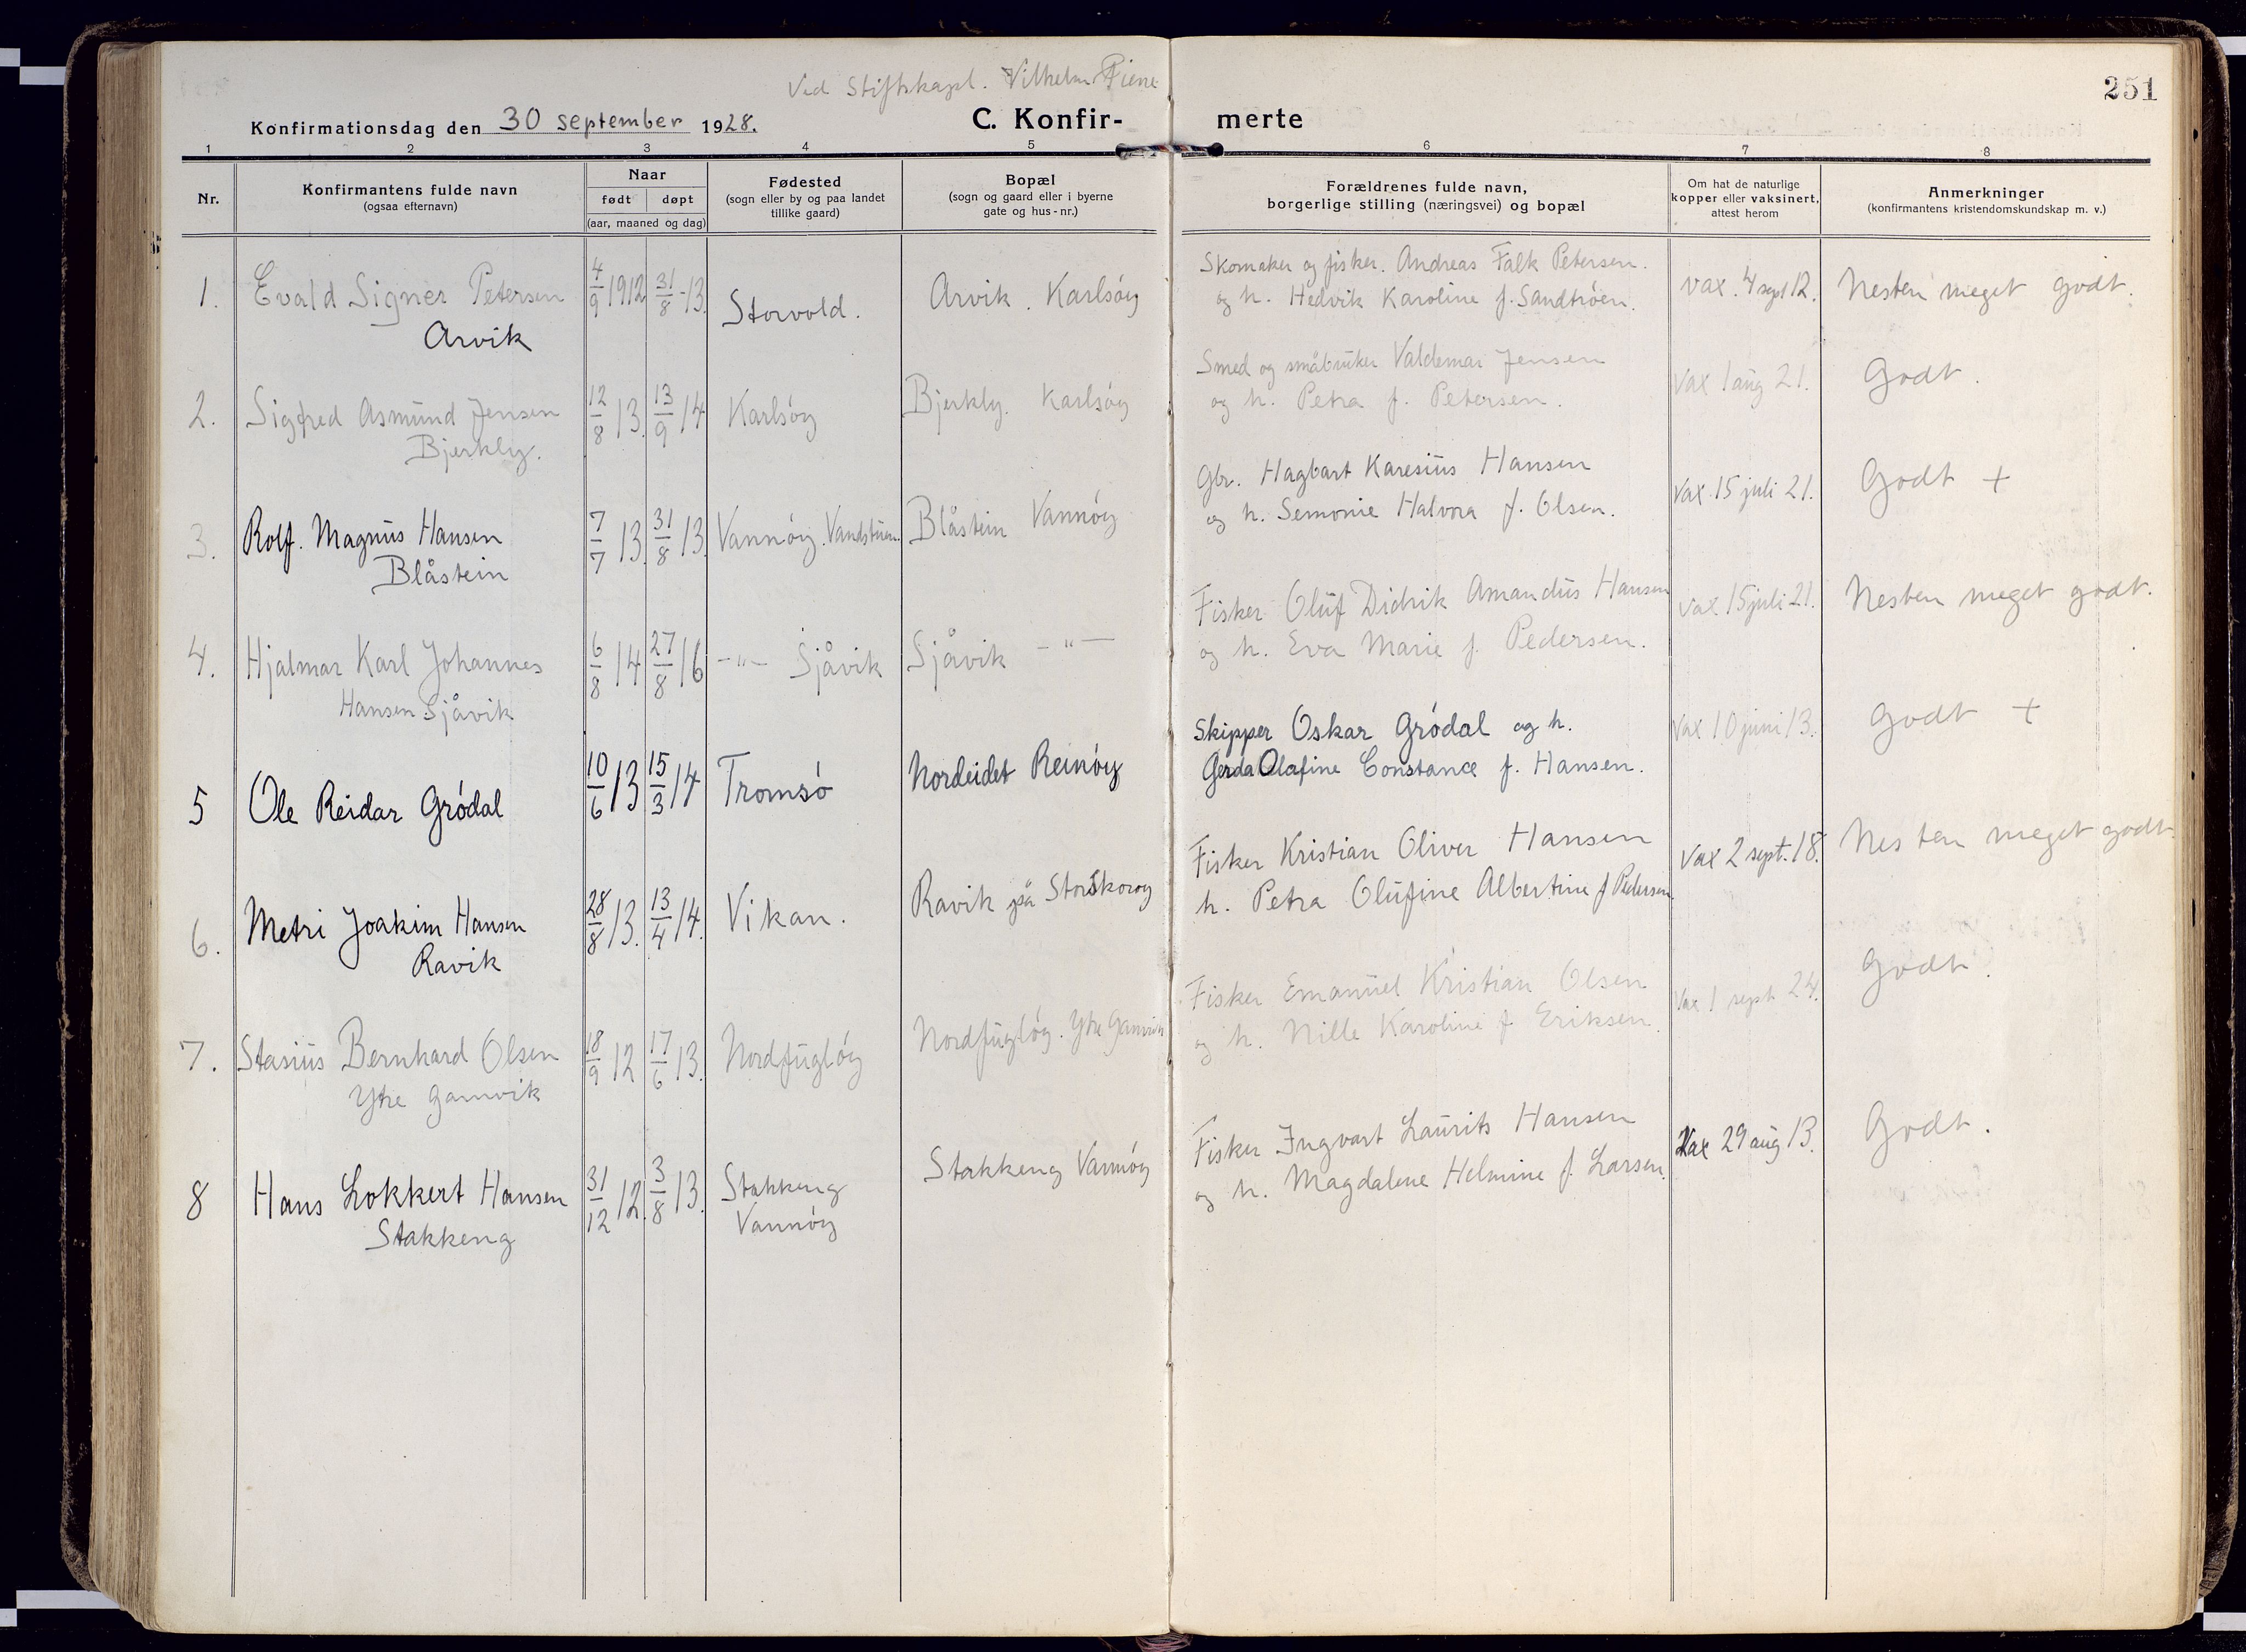 251
Ved Stiftskapl. Vilhelm Piene
Konfirmationsdag den 30 september 1928.
C. Konfir- merte
1 2 3 4 5 6 7 8
Nr.
Konfirmantens fulde navn
(ogsaa efternavn)
Naar
født døpt
(aar, maaned og dag)
Fødested
(sogn eller by og paa landet
tillike gaard)
Bopæl
(sogn og gaard eller i byerne
gate og hus-nr.)
Forældrenes fulde navn,
borgerlige stilling (næringsvei) og bopæl
Om hat de naturlige
kopper eller vaksinert,
attest herom
Anmerkninger
(konfirmantens kristendomskundskap m. v.)
1. Evald Signer Petersen 4/9 1912 31/8-13. Storvold. Arvik. Karlsóy
Arvik
Skomaker og fisker. Andreas Falk Petersen.
og h. Hedvik Karoline f. Sandtróen.
vax. 4 sept 12. Nesten meget godt.
2. Sigfred Asmund Jensen 12/8 13. 13/9 14 Karlsóy Bjerkly. Karlsóy
Bjerkly.
Smed og småbruker Valdemar Jensen
og h. Petra f. Petersen.
Vax 1 aug 21. Godt.
3. Rolf. Magnus Hansen 7/7 13. 31/8 13. Vannóy. Vandstuen. Blåstein Vannóy
Blåstein
Gbr. Hagbart Karesius Hansen
og h. Semonie Halvora f. Olsen.
Vax. 15 juli 21. Godt +
4. Hjalmar Karl Johannes 6/8 14 27/8 16 -"- Sjåvik Sjåvik -"-
Hansen Sjåvik
Fisker Oluf Didrik Amandus Hansen
og h. Eva Marie f. Pedersen.
Vax 15 juli 21. Nesten meget godt.
5 Ole Reidar Gródal 10/6 13 15/3 14 Tromsó Nordeidet Reinóy
Skipper Oskar Gródal og h.
Gerda Olafine Constance f. Hansen.
Vax 10 juni 13. Godt +
6. Metri Joakim Hansen 28/8 13. 13/4 14. Vikan. Ravik på Storskoróy
Ravik
Fisker Kristian Oliver Hansen
h. Petra Olufine Albertine f Pedersen
Vax 2 sept. 18. Nesten meget godt.
7. Stasius Bernhard Olsen 18/9 12 17/6 13. Nordfuglóy Nordfuglóy. Ytre Gamvik
Ytre Gamvik
Fisker Emanuel Kristian Olsen
og h. Nille Karoline f. Eriksen.
Vax 1 sept 24. Godt.
8 Hans Lokkert Hansen 31/12 12. 3/8 13. Stakkeng Stakkeng Vannóy
Stakkeng
Vannóy
Fisker Ingvart Laurits Hansen
og h. Magdalene Helmine f. Larsen.
Vax 29 aug 13. Godt.